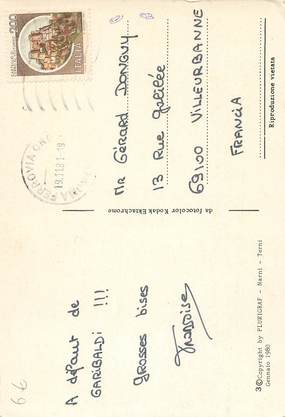 A défaut de
GARIBALDI !!!
grosses bises
Françoise
Mr Gérard DONGUY
13 Rue galilée
69100 VILLEURBANNE
FRANCIA
200
ITALIA
19.11.81-19
da fotocolor Kodak Ektachrome
Riproduzione vietata
3 © Copyright by PLURIGRAF - Narni - Terni
Gennaio 1980
6 €